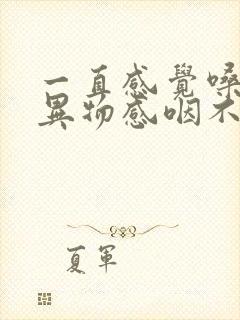 一直感覺嗓
異物感咽不
夏軍